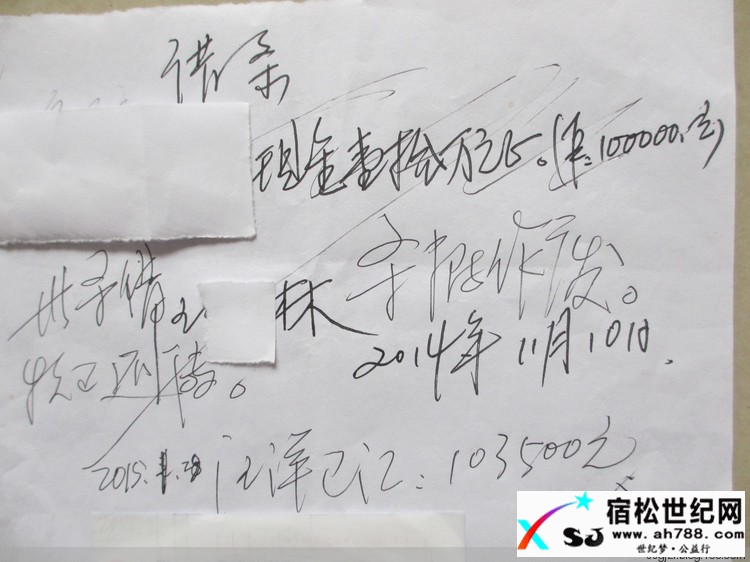 借条
现金壹拾万元正。(¥:100000.元)
此条借
林
条据作废。
已还清。
2014年11月10日.
2015.1.28 汪洋已汇:103500元
XSJ 宿松世纪网
www.ah788.com
世纪梦·公益行